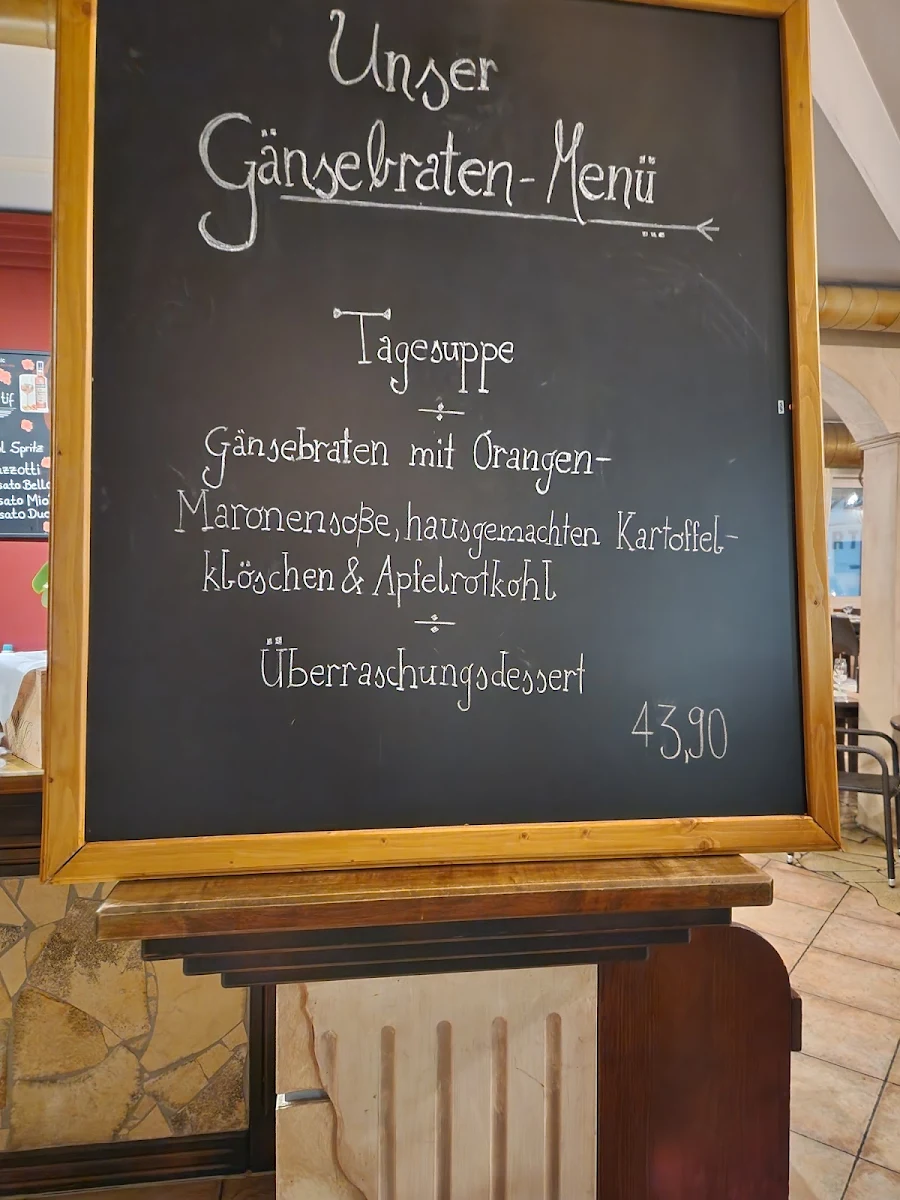 Unser
Gänsebraten-Menü
Tagesuppe
Gänsebraten mit Orangen-
Maronensoße, hausgemachten Kartoffel-
klöschen & Apfelrotkohl
Überraschungsdessert
43,90
tif
Spritz